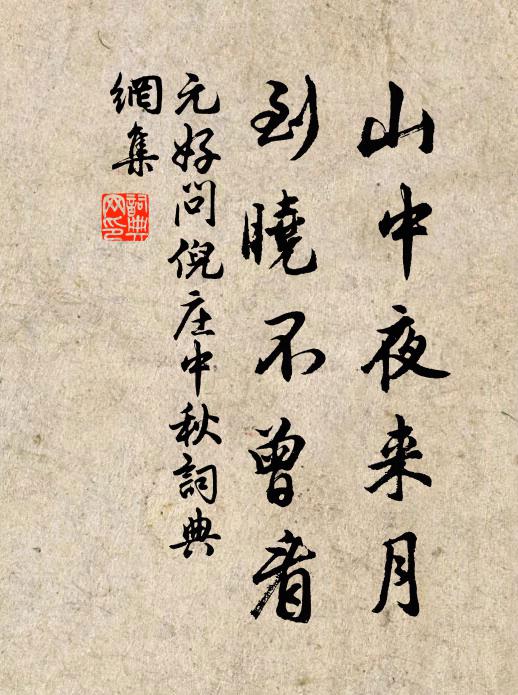 山中夜来月
到曉不曾看
元好問倪庄中秋詞典
網集
詞典
网印